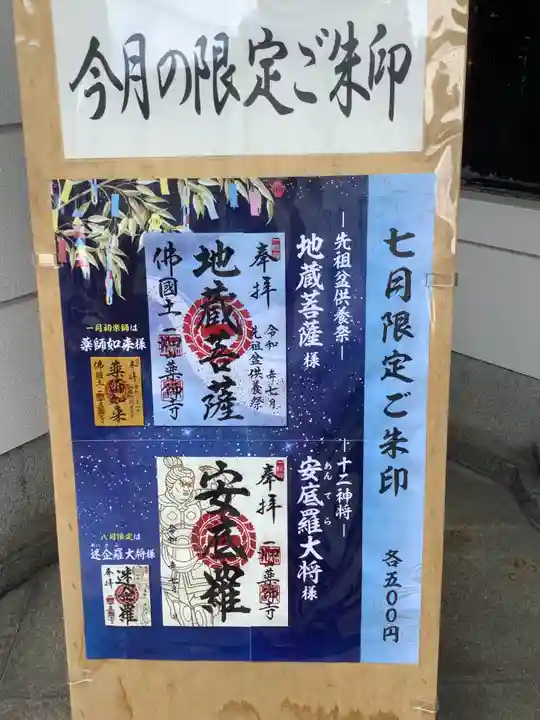 今月の限定ご朱印
七月限定ご朱印
各五〇〇円
―先祖盆供養祭―
地蔵菩薩様
奉拝
令和 年七月
先祖盆供養祭
地蔵菩薩
佛國土
薬師寺
一月初薬師は
薬師如来様
奉拝
薬師如来
佛國土
―十二神将―
安底羅大将様
あんてら
奉拝
薬師寺
安底羅
令和 年七月
八月限定は
迷企羅大将様
奉拝
迷企羅